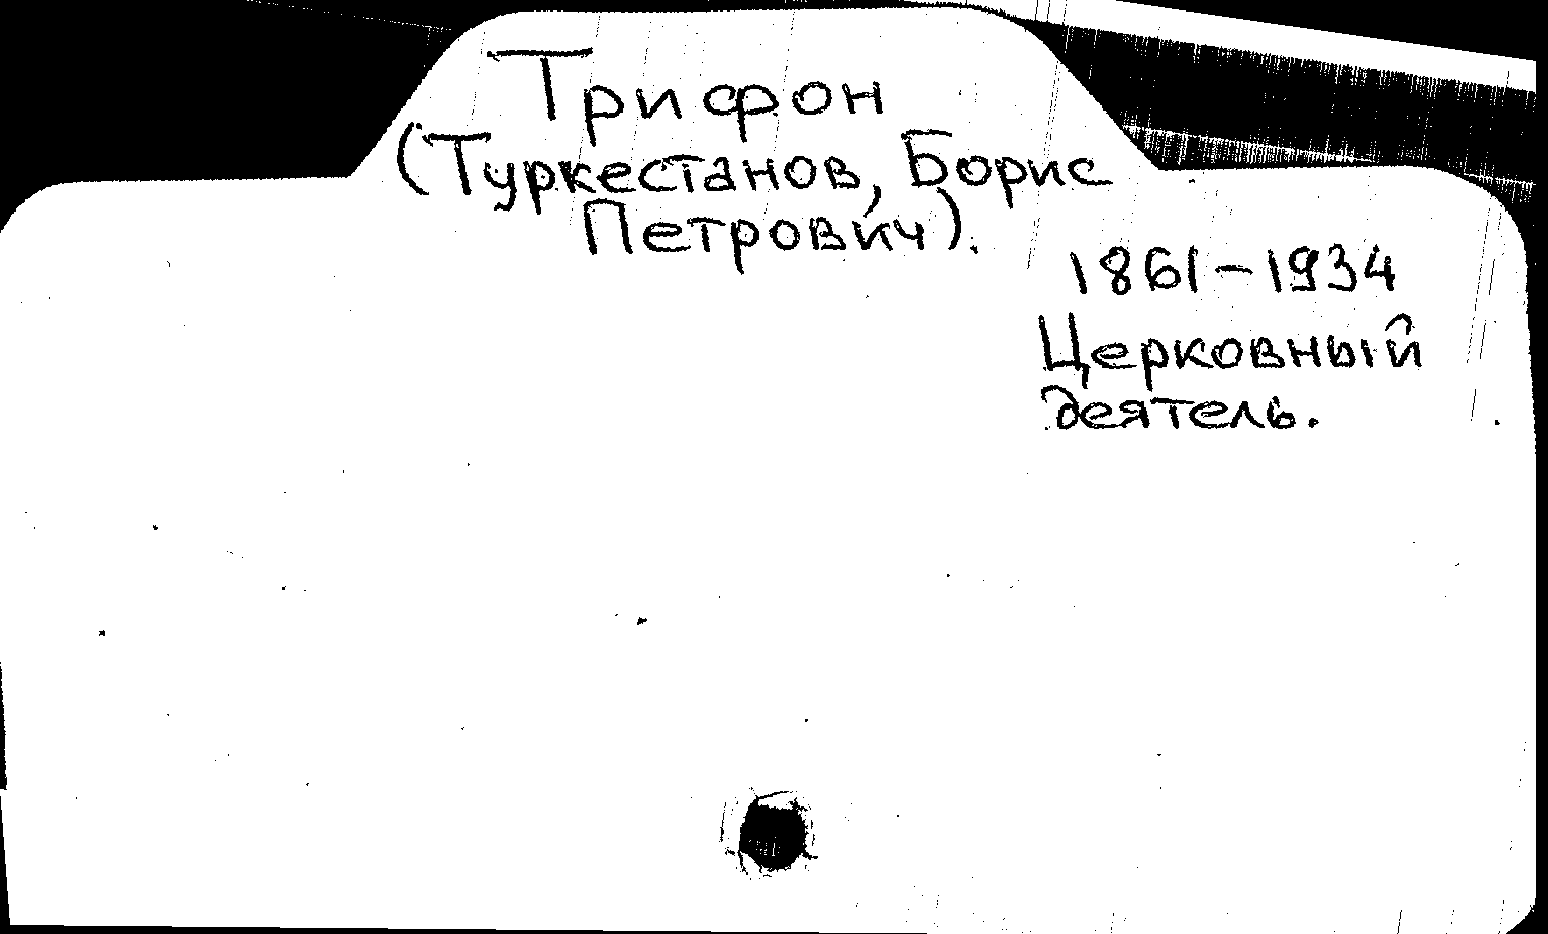 Трифон
(Туркестанов, Борис
Петрович).
1861-1934
Церковный
деятель.